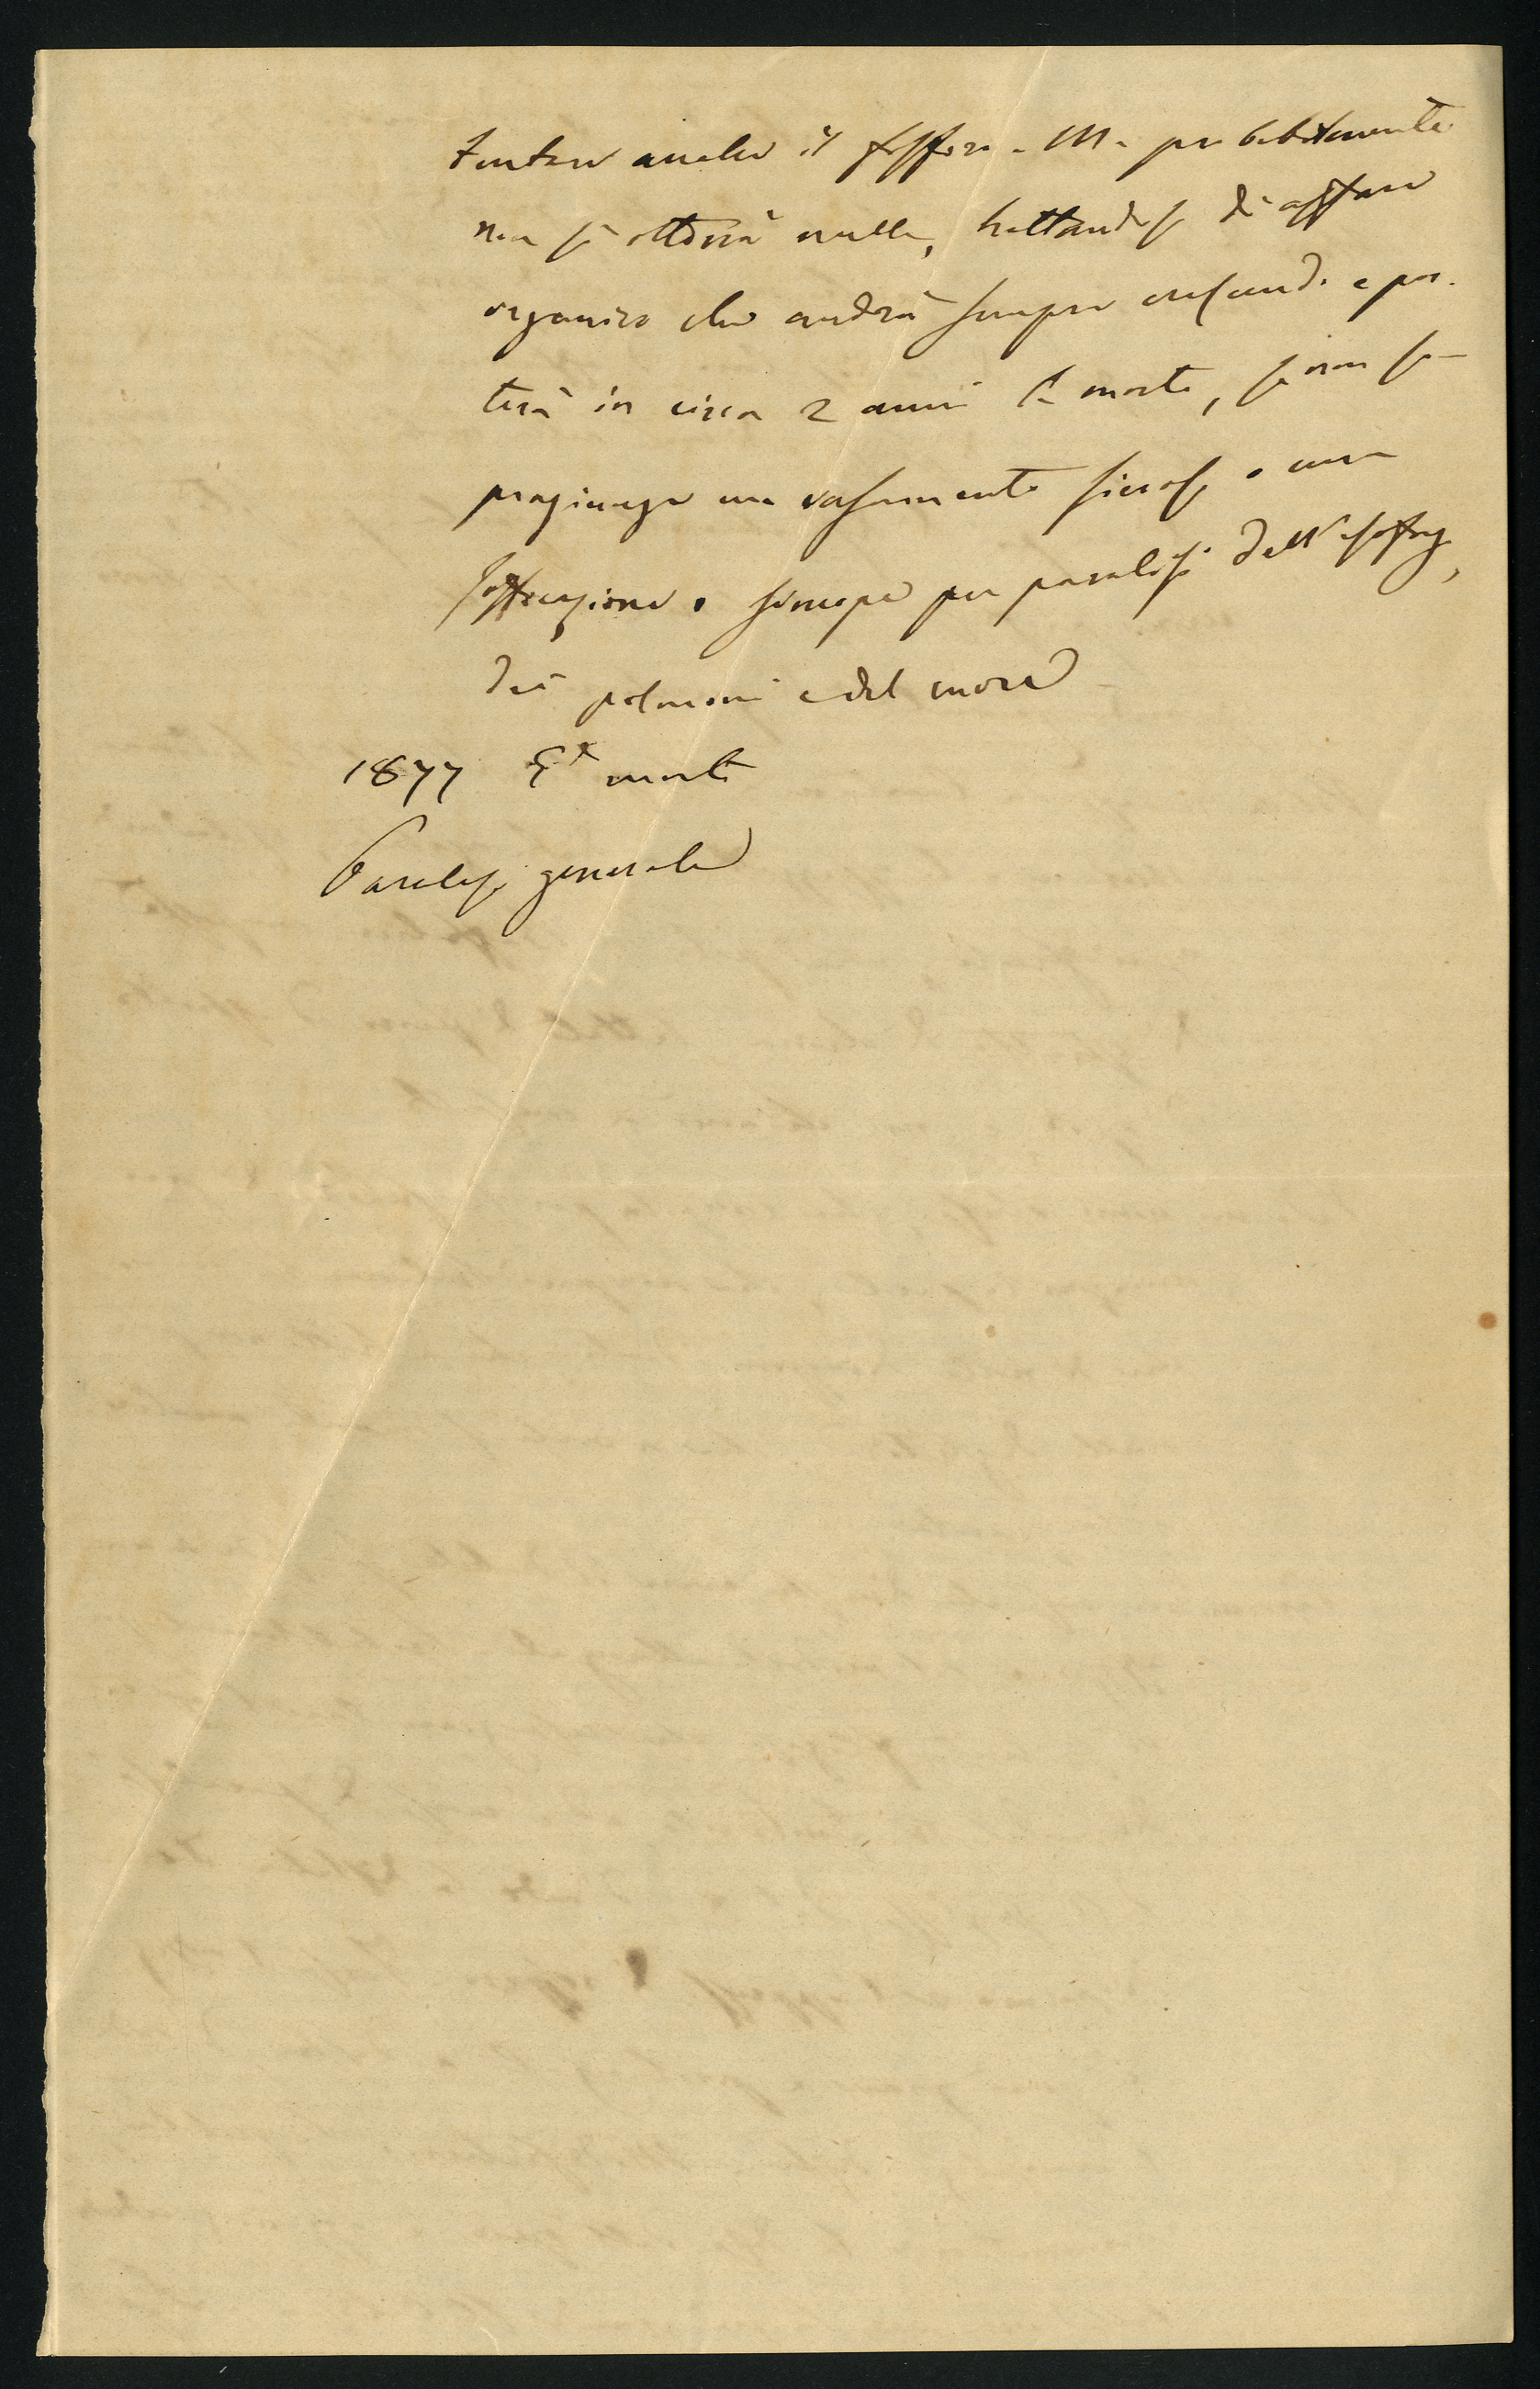 tentare anche il fosforo. Ma probabilmente
non si otterrà nulla, trattandosi di affare
organico che andrà sempre crescendo e por-
terà in circa 2 anni la morte, se non so-
praggiunge un versamento sieroso o una
soffocazione o sincope per paralisi dell'esofago,
dei polmoni e del cuore
1877 È morto
Paralisi generale